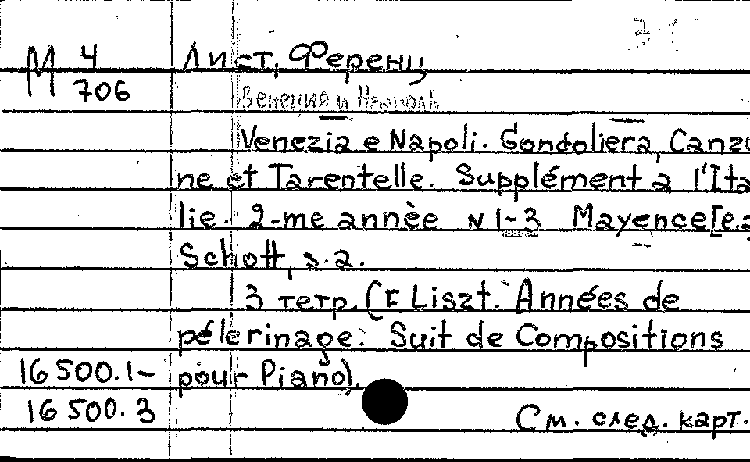 М 4
706
Лист, Ференц
Венеция и Неаполь
Venezia e Napoli. Gondoliera, Canzo
ne et Tarentelle. Supplément a l'Ita
lie. 2-me annèe N 1-3 Mayence [e.a
Schott, s.a.
3 тетр. (F. Liszt. Années de
pélerinage. Suit de Compositions
pour Piano).
16 500.1-
16 500.3
См. след. карт.